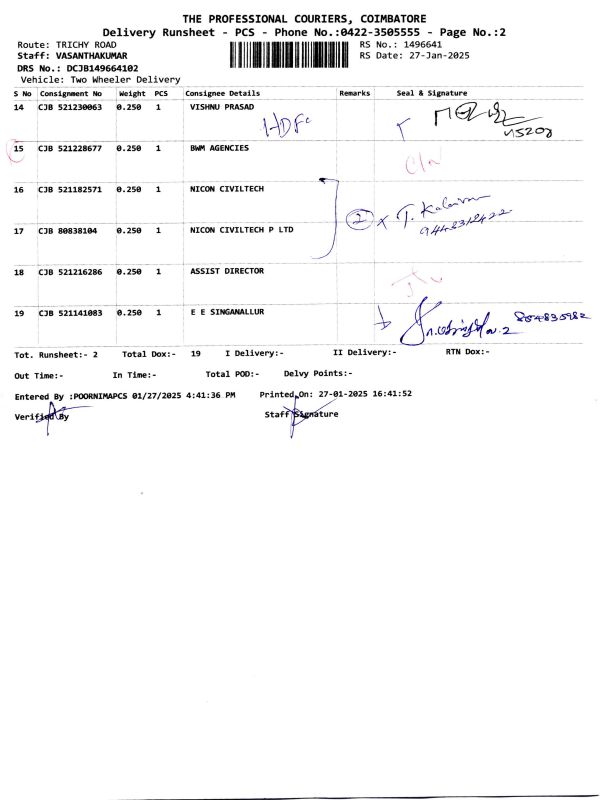 THE PROFESSIONAL COURIERS, COIMBATORE
Delivery Runsheet - PCS - Phone No.:0422-3505555 - Page No.:2
Route: TRICHY ROAD RS No.: 1496641
Staff: VASANTHAKUMAR RS Date: 27-Jan-2025
DRS No.: DCJB149664102
Vehicle: Two Wheeler Delivery
S No Consignment No Weight PCS Consignee Details Remarks Seal & Signature
14 CJB 521230063 0.250 1 VISHNU PRASAD
HDFC
15 CJB 521228677 0.250 1 BWM AGENCIES
16 CJB 521182571 0.250 1 NICON CIVILTECH
2 x T.
17 CJB 80838104 0.250 1 NICON CIVILTECH P LTD
18 CJB 521216286 0.250 1 ASSIST DIRECTOR
19 CJB 521141083 0.250 1 E E SINGANALLUR
Tot. Runsheet:- 2 Total Dox:- 19 I Delivery:- II Delivery:- RTN Dox:-
Out Time:- In Time:- Total POD:- Delvy Points:-
Entered By :POORNIMAPCS 01/27/2025 4:41:36 PM Printed On: 27-01-2025 16:41:52
Verified By Staff Signature